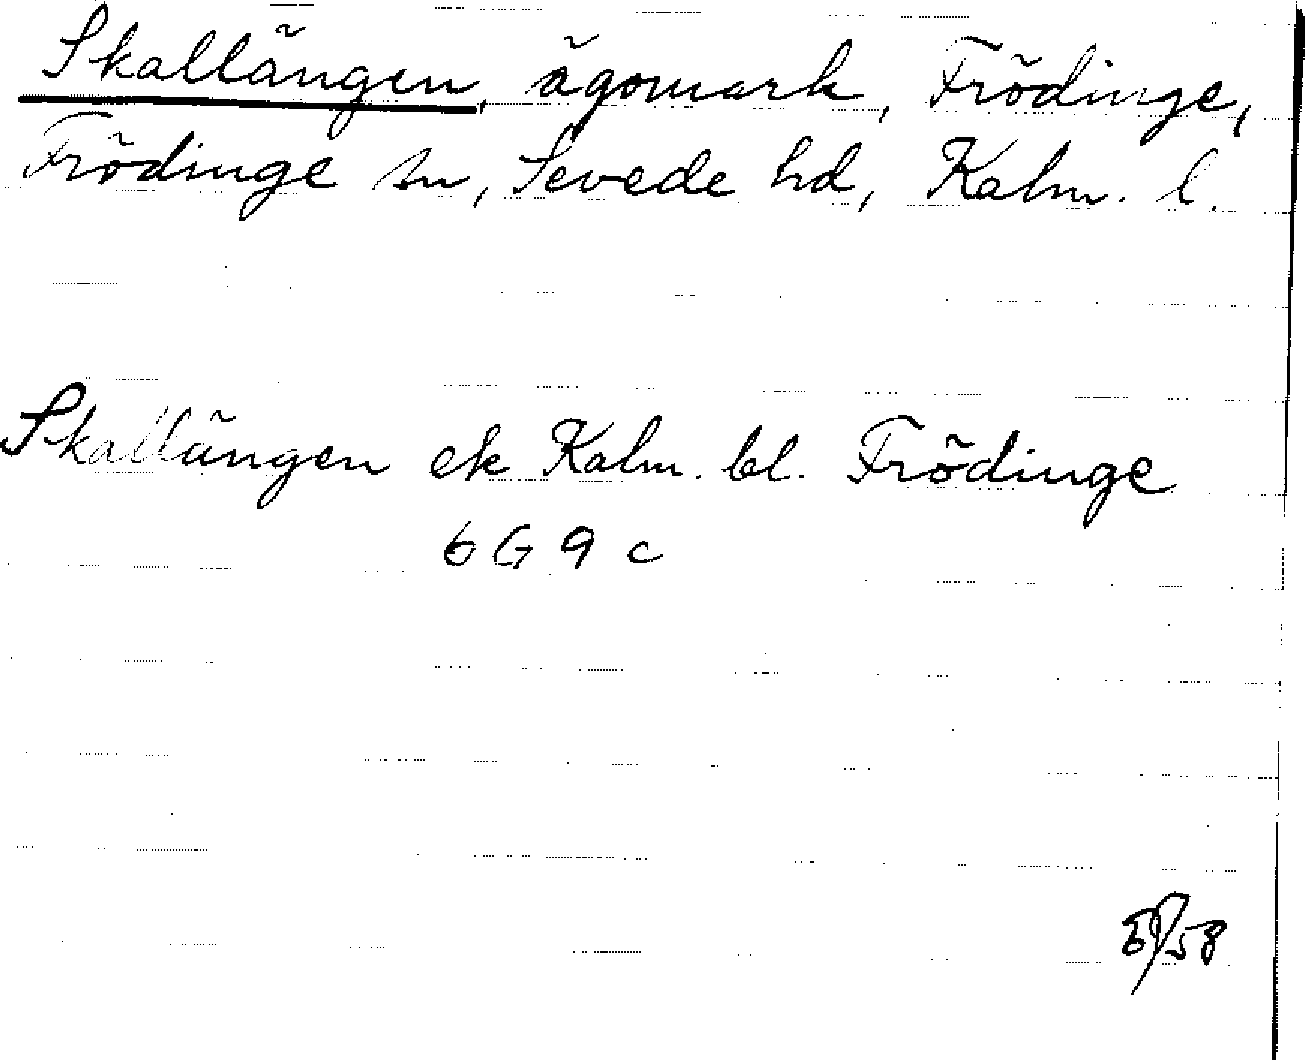 Skallängen, ägomark, Frödinge,
Frödinge sn, Sevede hd, Kalm. l.
Skallängen ek Kalm. bl. Frödinge
6 G 9 c